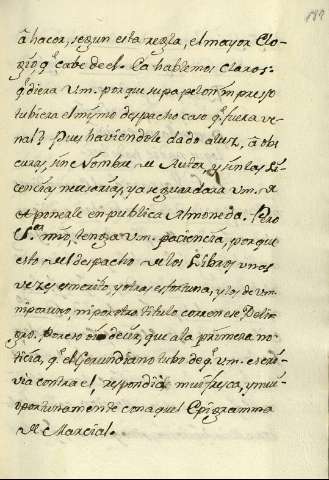 à hacer, segun esta regla, el mayor Elo-
gio q.e cabe de el. Ea hablemos claros.
q.e diera Vm. porque su papelon impresso
tubiera el mismo despacho caso q.e fuera ve-
nal? Pues haviendole dado à luz, à obs-
curas, sin el Nombre de Autor, y sin las Li-
cencias necesarias, ya se guardara Vm. de
ponerle en publica Almoneda. Pero
S.or mio, tenga Vm. paciencia, porque
esto del despacho de los Libros unas
vezes es merito, y otras es fortuna, y los de Vm.
ni por uno, ni por otro titulo corren ese Peli-
gro. Por eso oi decir, que a la primera no-
ticia, q.e el Gerundiano tubo de q.e Vm. escri-
via contra el, respondiò mui fresca, y mui
oportunamente con aquel Epigramma
de Marcial.